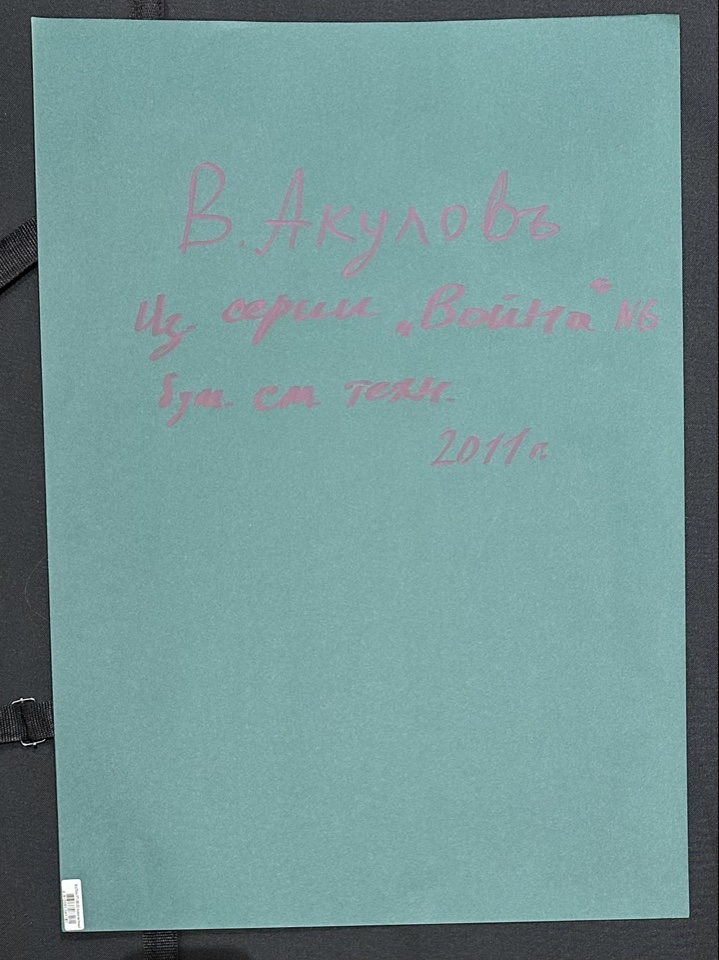 В. Акуловъ
Из серии „Война" №6
бум. см техн.
2011 г.